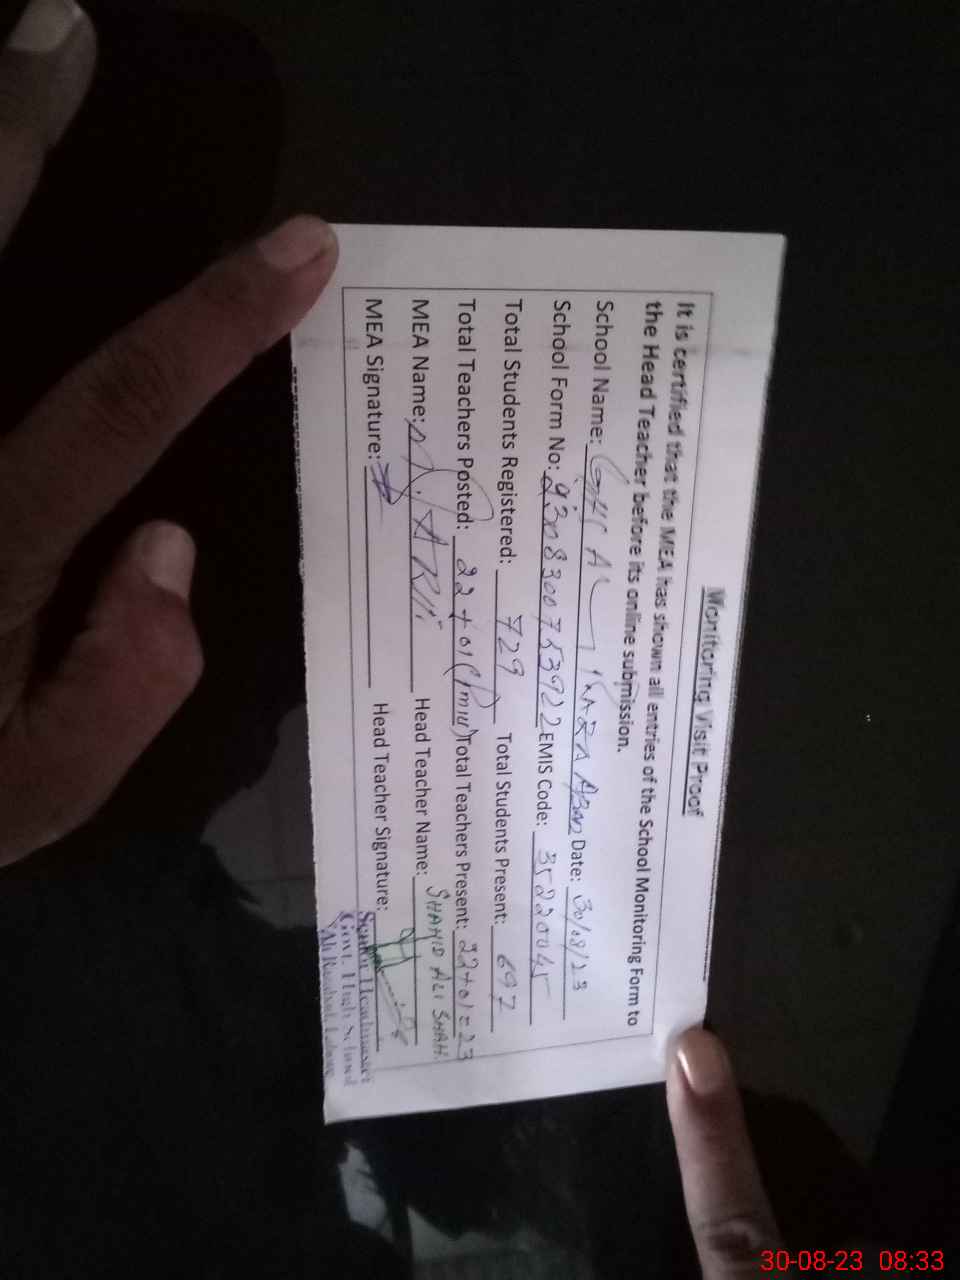 Monitoring Visit Proof
It is certified that the MEA has shown all entries of the School Monitoring Form to
the Head Teacher before its online submission.
School Name: GHS Date: 30/08/23
School Form No: EMIS Code: 35220045
Total Students Registered: 729 Total Students Present: 697
Total Teachers Posted: 22+01 Total Teachers Present: 22+01=23
MEA Name: Head Teacher Name: SHAHID ALI SHAH.
MEA Signature: Head Teacher Signature:
Senior Headmaster
Govt. High School
Lahore
30-08-23 08:33